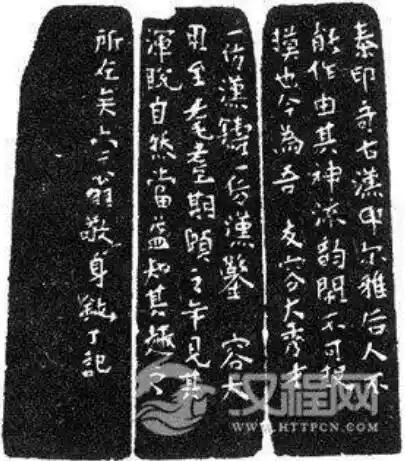 秦印奇古漢印尔雅后人不
能作由其神流韵閒不可捉
摸也今為吾 友容大秀才
一仿漢鑄一仿漢鑿 容大
用至耄耋期頤之年見其
渾脱自然當益知其趣之
所在矣六翁敬身鈍丁記
汉程网
WWW.HTTPCN.COM